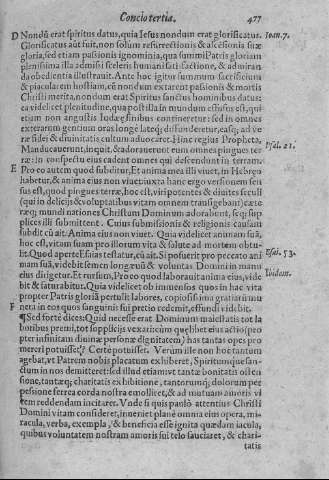 Concio tertia. 477
D Nondũ erat spiritus datus, quia Iesus nondum erat glorificatus. Ioan. 7.
Glorificatus aūt fuit, non solum resurrectionis & ascẽsionis suæ
gloria, sed etiam passionis ignominia, qua summi Patris gloriam
plenissima illa admissi sceleris humani satisfactione, & admiran
da obedientia illustrauit. Ante hoc igitur summum sacrificium
& piacularem hostiam, cũ nondum extarent passionis & mortis
Christi merita, nondum erat Spiritus sanctus hominibus datus:
ea videlicet plenitudine, qua postilla in mundum effusus est, qui
etiam non angustis Iudææ finibus contineretur: sed in omnes
exterarum gentium oras longè latèq; diffunderetur, easq; ad ve
ræ fidei & diuinitatis cultum aduocaret. Hinc regius Propheta,
Manducauerunt, inquit, & adorauerunt eum omnes pingues ter Psal. 21.
ræ: in conspectu eius cadent omnes qui descendunt in terram.
E Pro eo autem quod subditur, Et anima mea illi viuet, in Hebræo
habetur, & anima eius non viuet: iuxta hanc ergo versionem sen
sus est, quod pingues terræ, hoc est, viri potentes & diuites seculi
(qui in delicijs & voluptatibus vitam omnem transigebant) cæte
ræq; mundi nationes Christum Dominum adorabunt, seq; sup
plices illi submittent. Cuius submissionis & religionis causam
subdit cũ ait. Anima eius non viuet. Quia videlicet animam suã,
hoc est, vitam suam pro illorum vita & salute ad mortem obtu-
lit. Quod aperte Esaias testatur, cũ ait. Si posuerit pro peccato ani Esai. 53.
mam suã, videbit semen longæuũ & voluntas Domini in manu
eius dirigetur. Et rursum, Pro eo quod laborauit anima eius, vide Ibidem.
bit & saturabitur. Quia videlicet ob immensos quos in hac vita
propter Patris gloriã pertulit labores, copiosissima gratiarũ mu
F neta in eos quos sanguinis sui pretio redemit, effundi videbit.
¶ Sed forte dices: Quid necesse erat Dominum maiestatis tot la
boribus premi, tot supplicijs vexari: cùm quęlibet eius actio (pro
pter infinitam diuinæ personæ dignitatem) has tantas opes pro
mereri potuisset? Certè potuisset. Verum ille non hoc tantum
agebat, vt Patrem nobis placatum exhiberet, Spiritumque san-
ctum in nos demitteret: sed illud etiam, vt tantæ bonitatis osten
sione, tantæq; charitatis exhibitione, tantorumq; dolorum per
pessione ferrea corda nostra emolliret, & ad mutuum amoris vi
cem reddendam incitaret. Vnde si quis paulò attentius Christi
Domini vitam consideret, inueniet planè omnia eius opera, mi-
racula, verba, exempla, & beneficia esse ignita quædam iacula,
quibus voluntatem nostram amoris sui telo sauciaret, & chari-
tatis